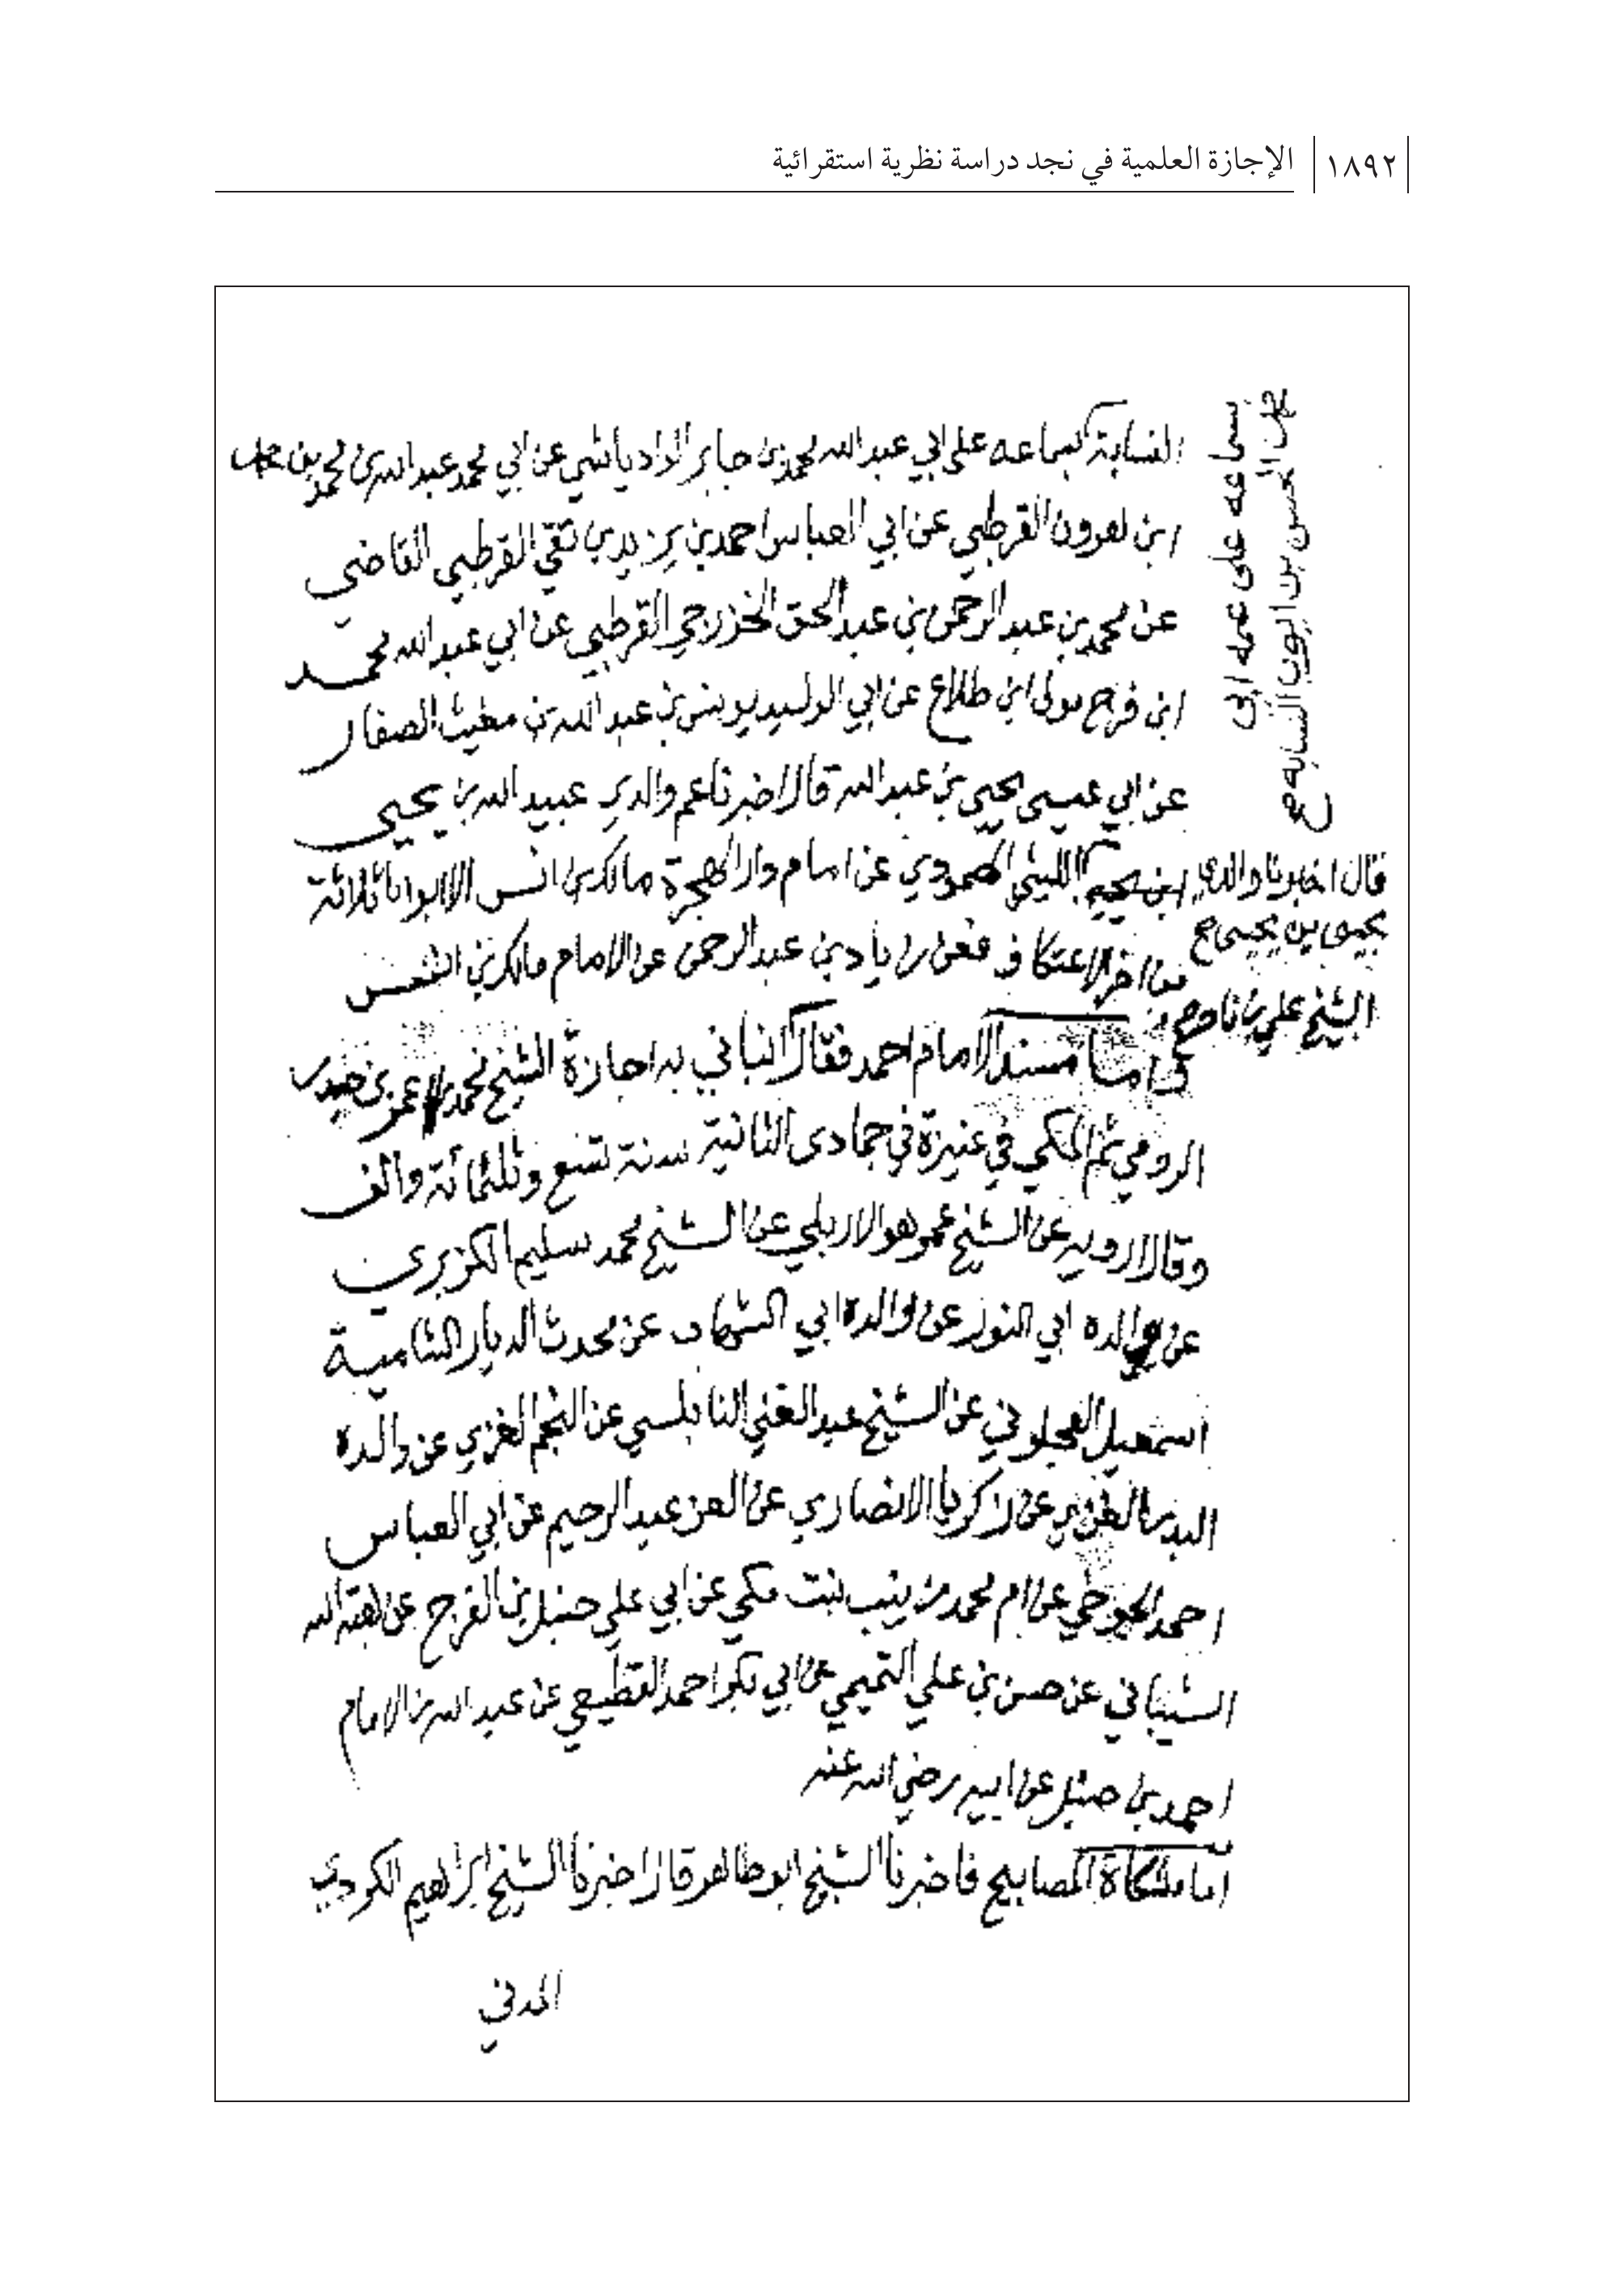 ١٨٩٢ الإجازة العلمية في نجد دراسة نظرية استقرائية
سماعه على عمه ابي
الحسن بن ايوب النسابه ح
النسابة بسماعه على ابي عبد الله محمد بن جابر الوادياشي عن ابي محمد عبد الله بن محمد بن
ابن هرون القرطبي عن ابي العباس احمد بن يزيد بن بقي القرطبي القاضي
عن محمد بن عبد الرحمن بن عبد الحق الخزرجي القرطبي عن ابي عبد الله محمد
ابن فرج مولى ابن طلاع عن ابي الوليد يونس بن عبد الله بن مغيث الصفار
عن ابي عيسى يحيى بن عبد الله قال اخبرنا عم والدي عبيد الله بن يحيى
قال اخبرنا والدي
يحيى بن يحيى ح
الليثي المصمودي عن امام دار الهجرة مالك بن انس الا ابوابا ثلاثة
من اخر الاعتكاف فعن زياد بن عبد الرحمن عن الامام مالك بن انس
الشيخ علي بن ناصح
واما مسند الامام احمد فقال انباني به اجازة الشيخ محمد بن عمر بن حيدر
الرومي ثم المكي في عنيزة في جمادى الثانية سنة تسع وثلثمائة والف
وقال ارويه عن الشيخ عمر هو الاربلي عن الشيخ محمد سليم الكزبري
عن والده ابي النور عن والده ابي الشهاب عن محدث الديار الشامية
اسمعيل العجلوني عن الشيخ عبد الغني النابلسي عن النجم الغزي عن والده
البدر الغزي عن زكريا الانصاري عن العز عبد الرحيم عن ابي العباس
احمد الجوخي عن ام محمد زينب بنت مكي عن ابي علي حنبل بن الفرج عن هبة الله
الشيباني عن حسن بن علي التميمي عن ابي بكر احمد القطيعي عن عبد الله بن الامام
احمد بن حنبل عن ابيه رضي الله عنه
اما مشكاة المصابيح فاخبرنا الشيخ ابو طاهر قال اخبرنا الشيخ ابراهيم الكردي
المدني